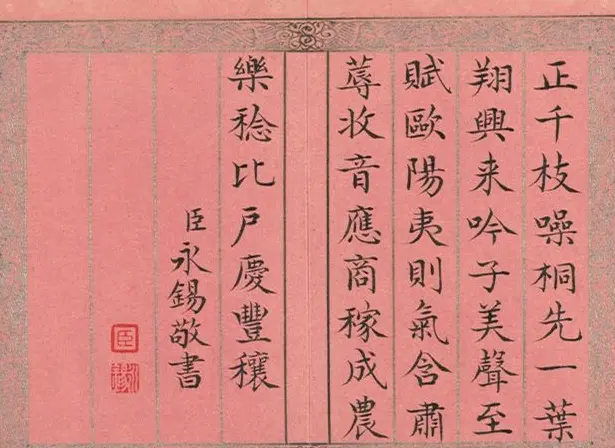 正千枝噪桐先一葉
翔興来吟子美聲至
賦歐陽夷則氣含肅
蓐收音應商稼成農
樂稔比戶慶豐穰
臣永錫敬書
臣
永錫